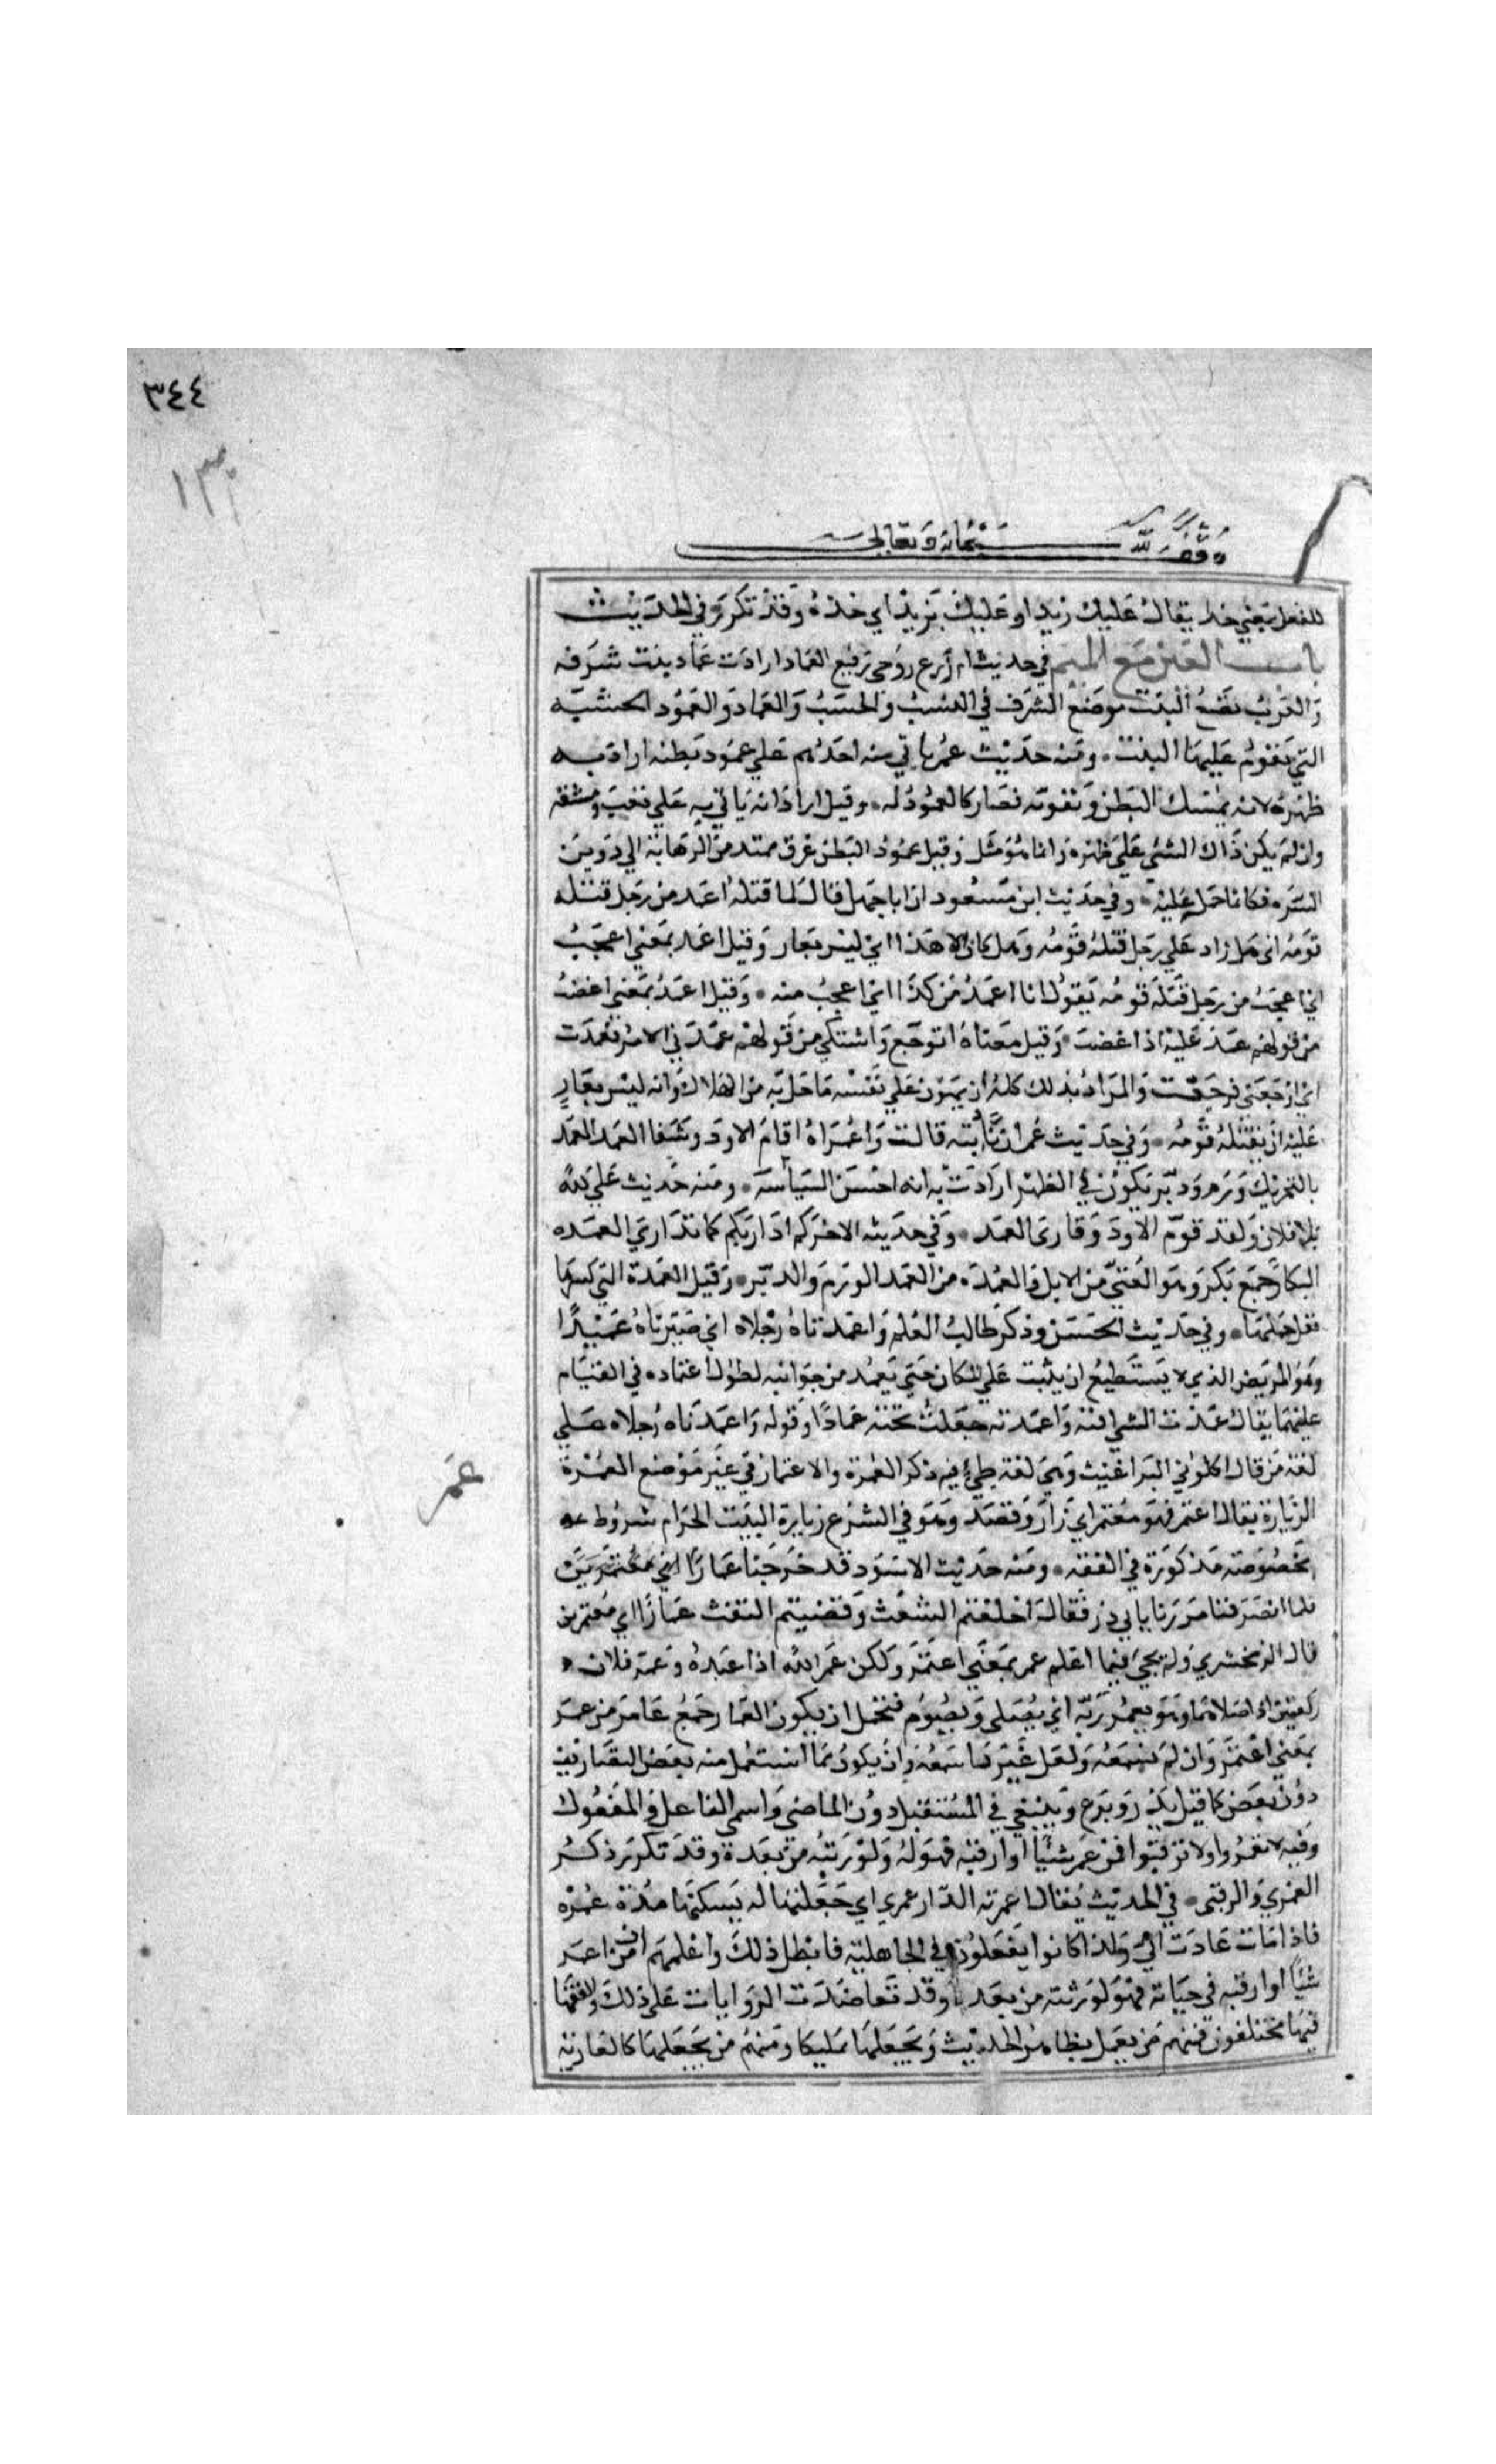 ٣٤٤
١٣
وقف لله سبحانه وتعالى
للفعل بمعني خذ يقال عليك زيدا وعليك بزيد اي خذه وقد تكرر في الحديث
باب العين مع الميم في حديث ام زرع زوجي رفيع العماد ارادت عماد بيت شرفه
والعرب تضع البيت موضع الشرف في النسب والحسب والعماد والعمود الخشبه
التي تقوم عليها البيت ومنه حديث عمر ياتي به احدهم علي عمود بطنه اراد به
ظهره لانه يمسك البطن وتقويه فصار كالعمود له وقيل اراد انه ياتي به علي تعب ومشقه
وان لم يكن ذاك الشي علي ظهره وانما هو مثل وقيل عمود البطن عرق ممتد من الرهابة الي دوين
السره فكانما حمل عليه وفي حديث ابن مسعود ان ابا جهل قال لما قتله اعمد من رجل قتله
قومه اي هل زاد علي رجل قتله قومه وهل كان الا هذا اي ليس بعار وقيل اعمد بمعني اعجب
اي اعجب من رجل قتله قومه يقول انا اعمد من كذا اي اعجب منه وقيل اعمد بمعني اغضب
من قولهم عمد عليه اذا غضب وقيل معناه اتوجع واشتكي من قولهم عمدني الامر فعمدت
اي اوجعني فوجعت والمراد بذلك كله ان يهون علي نفسه ما حل به من الهلاك وانه ليس بعار
عليه ان يقتله قومه وفي حديث عمر ان نادبته قالت واعمراه اقام الاود وشفا العمد العمد
بالتحريك ورم ودبر يكون في الظهر ارادت به انه احسن السياسه ومنه حديث علي لله
بلا فلان ولقد قوم الاود وداوى العمد وفي حديثه الاخر كم اداريكم كما تداري العمده
البكار جمع بكر وهو الفتي من الابل والعمدة من العمد الورم والدبر وقيل العمدة التي كسرها
ثقل حملها وفي حديث الحسن وذكر طالب العلم واعمدتاه رجلاه اي صيرتاه عميدا
وهو المريض الذي لا يستطيع ان يثبت علي المكان حتي يعمد من جوانبه لطول اعتماده في القيام
عليهما يقال عمدت الشي اقمته واعمدته جعلت تحته عمادا وقوله واعمدتاه رجلاه علي
لغة من قال اكلوني البراغيث وهي لغة طيئ فيه ذكر العمرة والاعتمار في غير موضع العمرة
عمر
الزيارة يقال اعتمر فهو معتمر اي زار وقصد وهو في الشرع زيارة البيت الحرام بشروط
مخصوصة مذكورة في الفقه ومنه حديث الاسود قد خرجنا عمارا اي معتمرين
فلما انصرفنا مررنا بابي ذر فقال احلقتم الشعث وقضيتم التفث عمارا اي معتمرين
قال الزمخشري ولم يجي فيما اعلم عمر بمعني اعتمر ولكن عمر الله اذا عبده وعمر فلان
ركعتين اذا صلاهما وهو يعمر ربه اي يصلي ويصوم فتحمل ان يكون العمار جمع عامر من عمر
بمعني اعتمر وان لم نسمعه ولعل غيرنا سمعه وان يكون مما استعمل منه بعض التصاريف
دون بعض كما قيل يذر ويدع وينبغي في المستقبل دون الماضي واسمي الفاعل والمفعول
وفيه لا تعمروا ولا ترقبوا فمن عمر شيا او ارقبه فهو له ولورثته من بعده وقد تكرر ذكر
العمري والرقبي في الحديث يقال اعمرته الدار عمري اي جعلتها له يسكنها مدة عمره
فاذا مات عادت الي وكذا كانوا يفعلون في الجاهلية فابطل ذلك واعلمهم ان من اعمر
شيا او ارقبه في حياته فهو لورثته من بعده وقد تعاضدت الروايات علي ذلك والفقها
فيها مختلفون فمنهم من يعمل بظاهر الحديث ويجعلها تمليكا ومنهم من يجعلها كالعارية